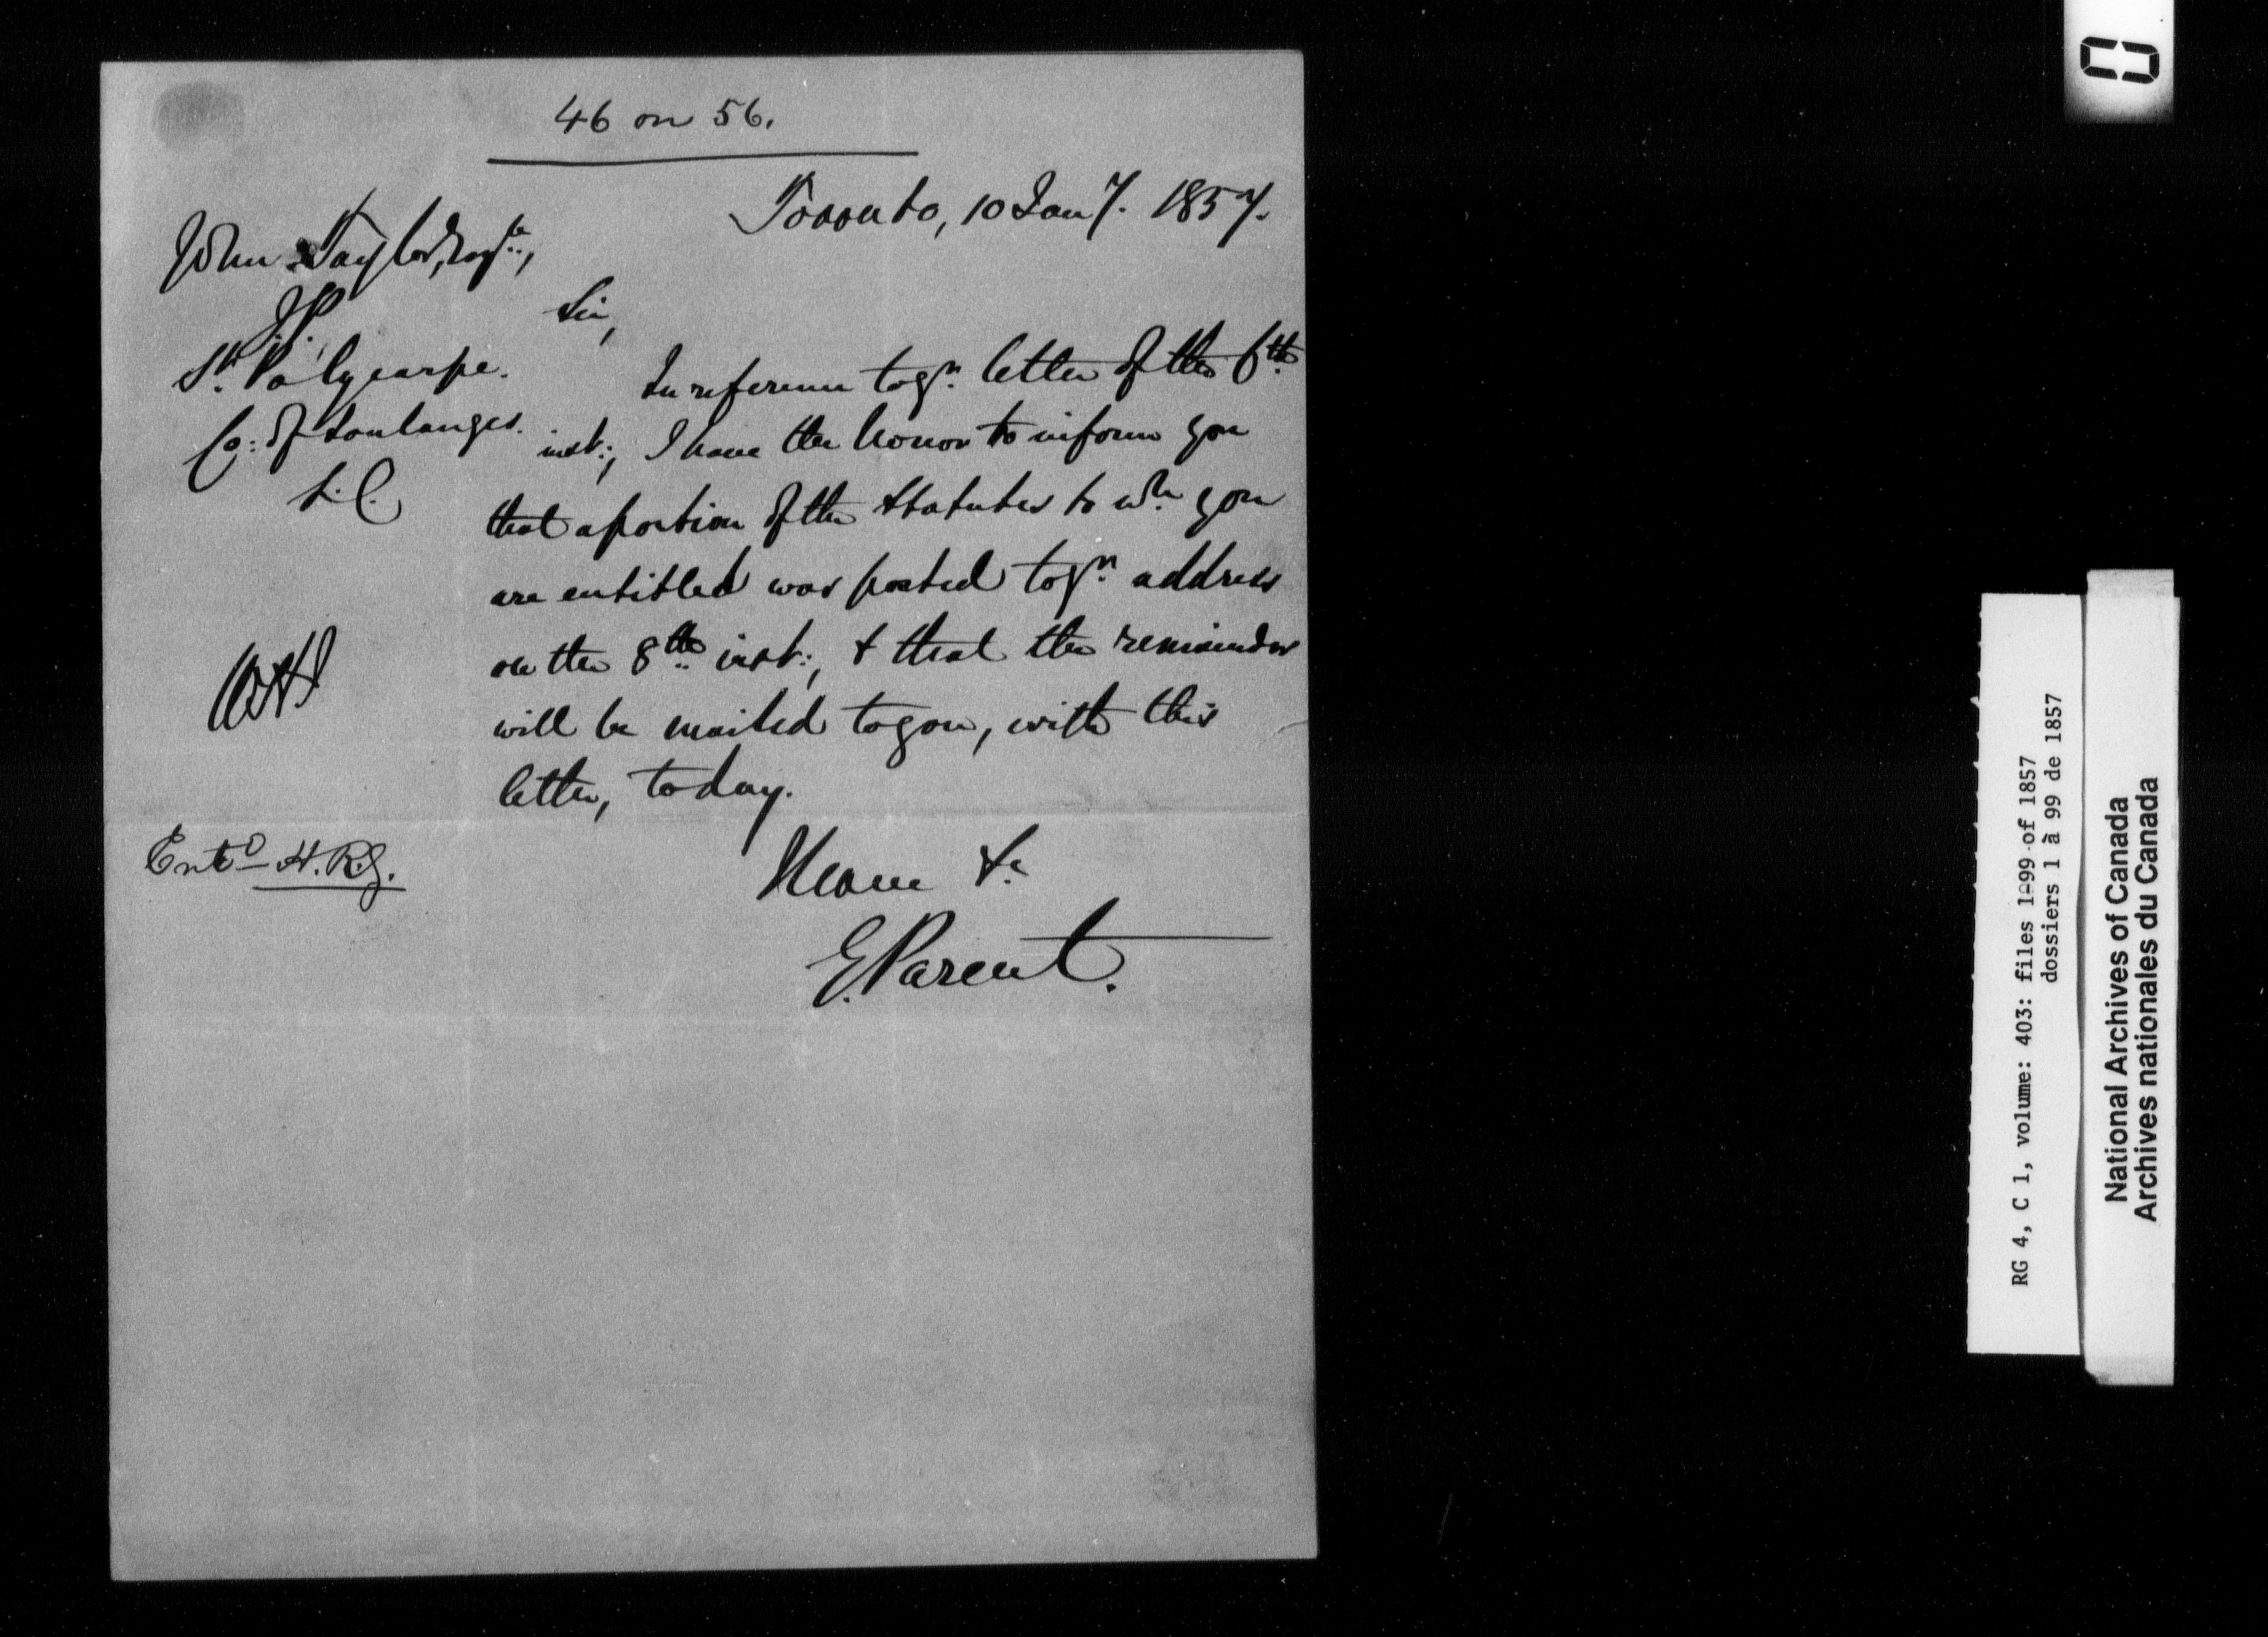 46 on 56.
Toronto, 10 Jany. 1857.
John Taylor, Esqre.,
J.P.,
St. Polycarpe.
Co: of Soulanges.
L.C.
Sir,
In reference to yr. letter of the 6th.
inst:, I have the honor to inform you
that a portion of the Statutes to wh. you
are entitled was posted to yr. address
on the 8th. inst:, & that the remainder
will be mailed to you, with this
letter, today.
I have &c
E. Parent.
Entd H.R.J.
RG 4, C 1, volume: 403: files 1-99 of 1857
dossiers 1 à 99 de 1857
National Archives of Canada
Archives nationales du Canada